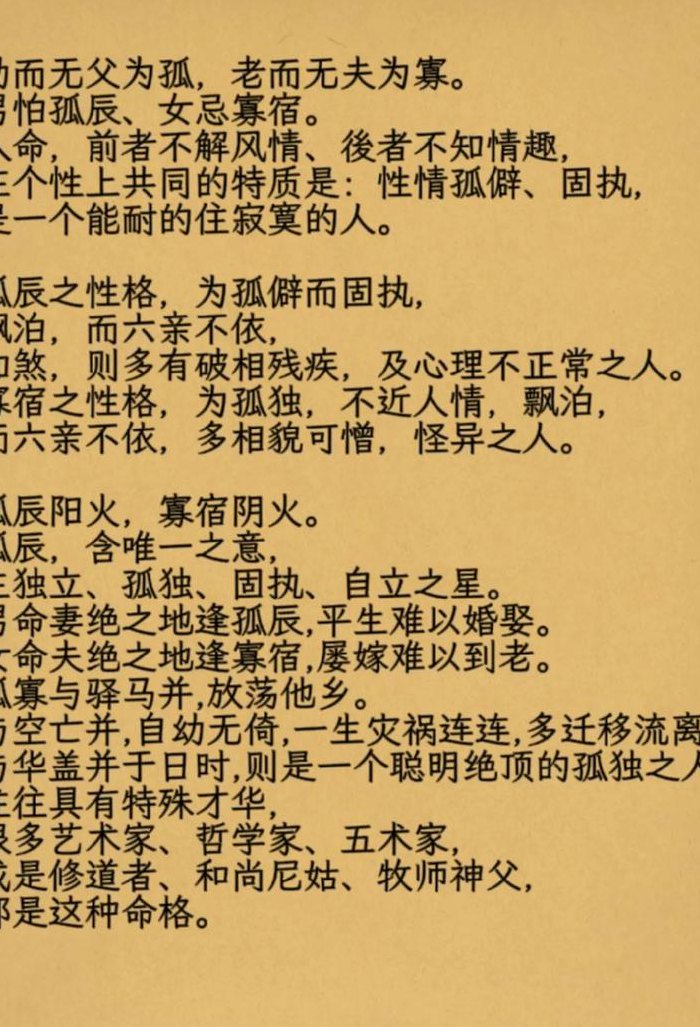 幼而无父为孤，老而无夫为寡。
男怕孤辰、女忌寡宿。
人命，前者不解风情、後者不知情趣，
在个性上共同的特质是：性情孤僻、固执，
是一个能耐的住寂寞的人。
孤辰之性格，为孤僻而固执，
飘泊，而六亲不依，
加煞，则多有破相残疾，及心理不正常之人。
寡宿之性格，为孤独，不近人情，飘泊，
而六亲不依，多相貌可憎，怪异之人。
孤辰阳火，寡宿阴火。
孤辰，含唯一之意，
主独立、孤独、固执、自立之星。
男命妻绝之地逢孤辰,平生难以婚娶。
女命夫绝之地逢寡宿,屡嫁难以到老。
孤寡与驿马并,放荡他乡。
与空亡并,自幼无倚,一生灾祸连连,多迁移流离
与华盖并于日时,则是一个聪明绝顶的孤独之人
往往具有特殊才华，
很多艺术家、哲学家、五术家，
或是修道者、和尚尼姑、牧师神父，
都是这种命格。